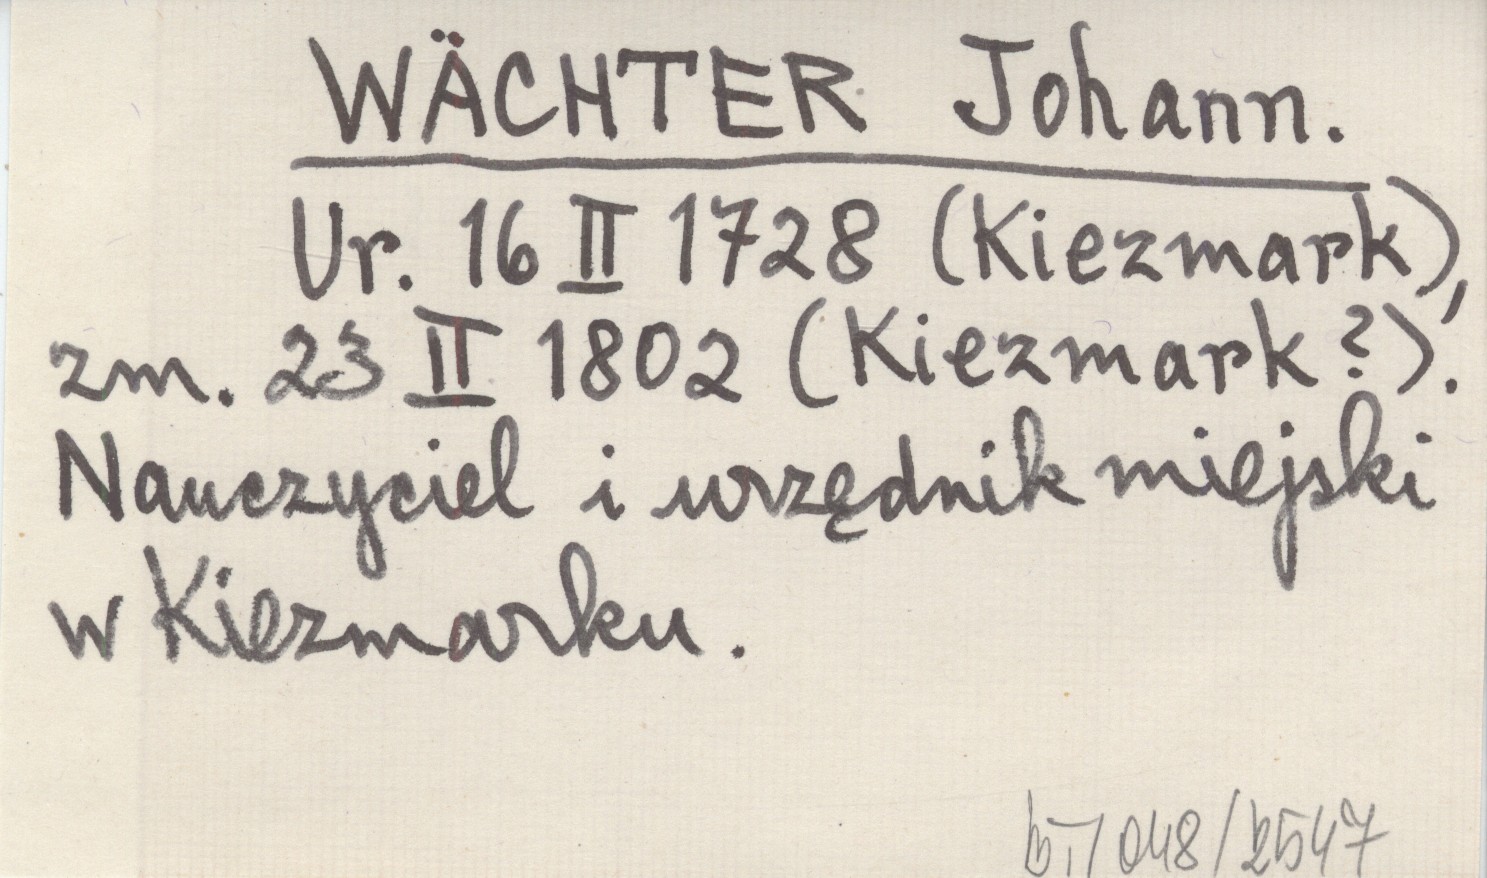 WÄCHTER Johann.
Ur. 16 II 1728 (Kiezmark),
zm. 23 II 1802 (Kiezmark?).
Nauczyciel i urzędnik miejski
w Kiezmarku.
048/2547